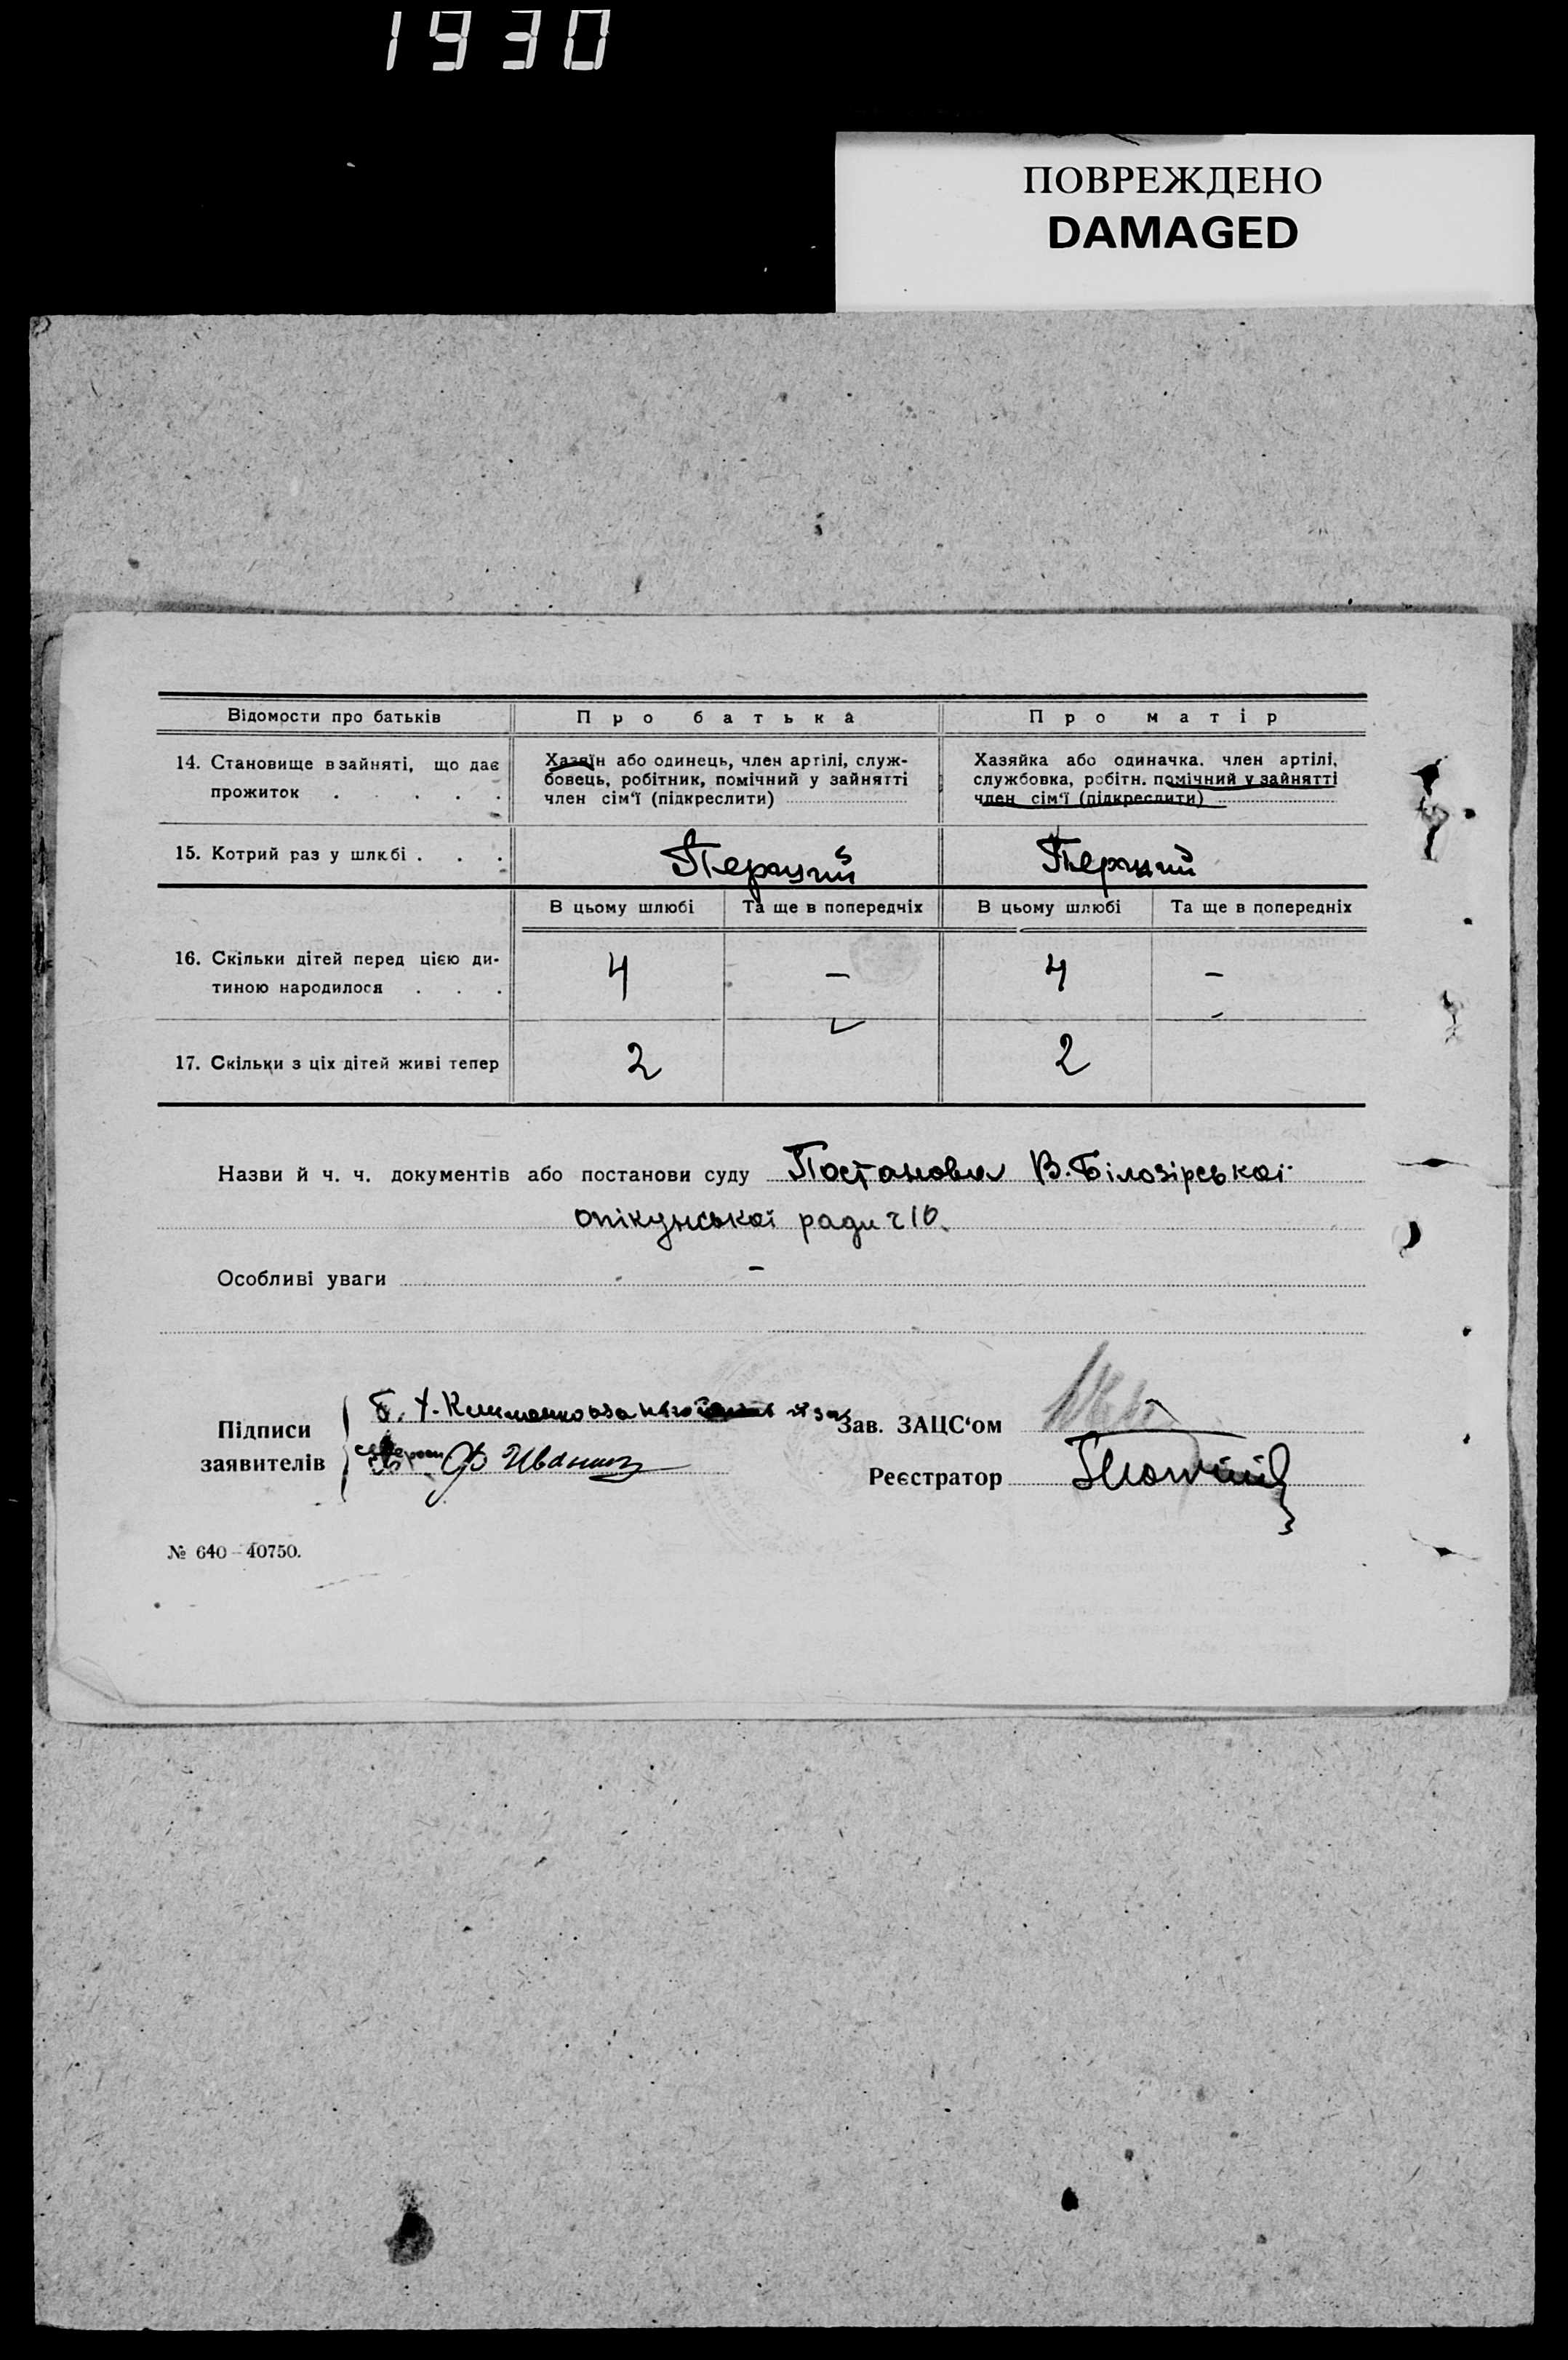 1930
ПОВРЕЖДЕНО
DAMAGED
Відомости про батьків
Про батька
Про матір
14. Становище в зайняті, що дає
прожиток . . . . .
Хазяїн або одинець, член артілі, служ-
бовець, робітник, помічний у зайнятті
член сім'ї (підкреслити)
Хазяйка або одиначка. член артілі,
службовка, робітн. помічний у зайнятті
член сім'ї (підкреслити)
15. Котрий раз у шлюбі . . .
Перший
Перший
В цьому шлюбі
Та ще в попередніх
В цьому шлюбі
Та ще в попередніх
16. Скільки дітей перед цією ди-
тиною народилося . . .
4
–
4
–
17. Скільки з ціх дітей живі тепер
2
2
Назви й ч. ч. документів або постанови суду Постанова В. Білозірської
опікунської ради ч 10.
Особливі уваги –
Підписи
заявителів
Ф Иванищ
Зав. ЗАЦС'ом
Реєстратор
№ 640–40750.